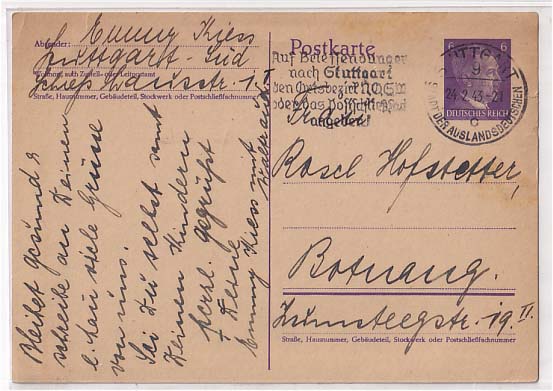 Absender: Emmy Kiess
Stuttgart-Süd
Wohnort, auch Zustell- oder Leitpostamt
Straße, Hausnummer, Gebäudeteil, Stockwerk oder Postschließfachnummer
Postkarte
Auf Briefsendungen
nach Stuttgart
den Ortsbezirk N,O,S,W
oder das Postschließfach
angeben!
STUTTGART 9
24.2.43-21
c
STADT DER AUSLANDSDEUTSCHEN
6 6
DEUTSCHES REICH
Rosel Hofstetter,
Botnang.
Zumsteegstr. 19 II.
Straße, Hausnummer, Gebäudeteil, Stockwerk oder Postschließfachnummer
Bleibet gesund &
schreibe an Deinen
viele Grüsse
von uns.
Sei Du selbst samt
Deinen Kindern
herzl. gegrüßt
Deine
Emmy Kiess mit
Waltraud